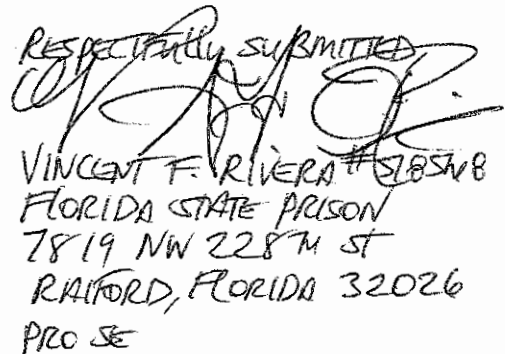 RESPECTFULLY SUBMITTED
VINCENT F. RIVERA
FLORIDA STATE PRISON
7819 NW 228TH ST
RAIFORD, FLORIDA 32026
PRO SE